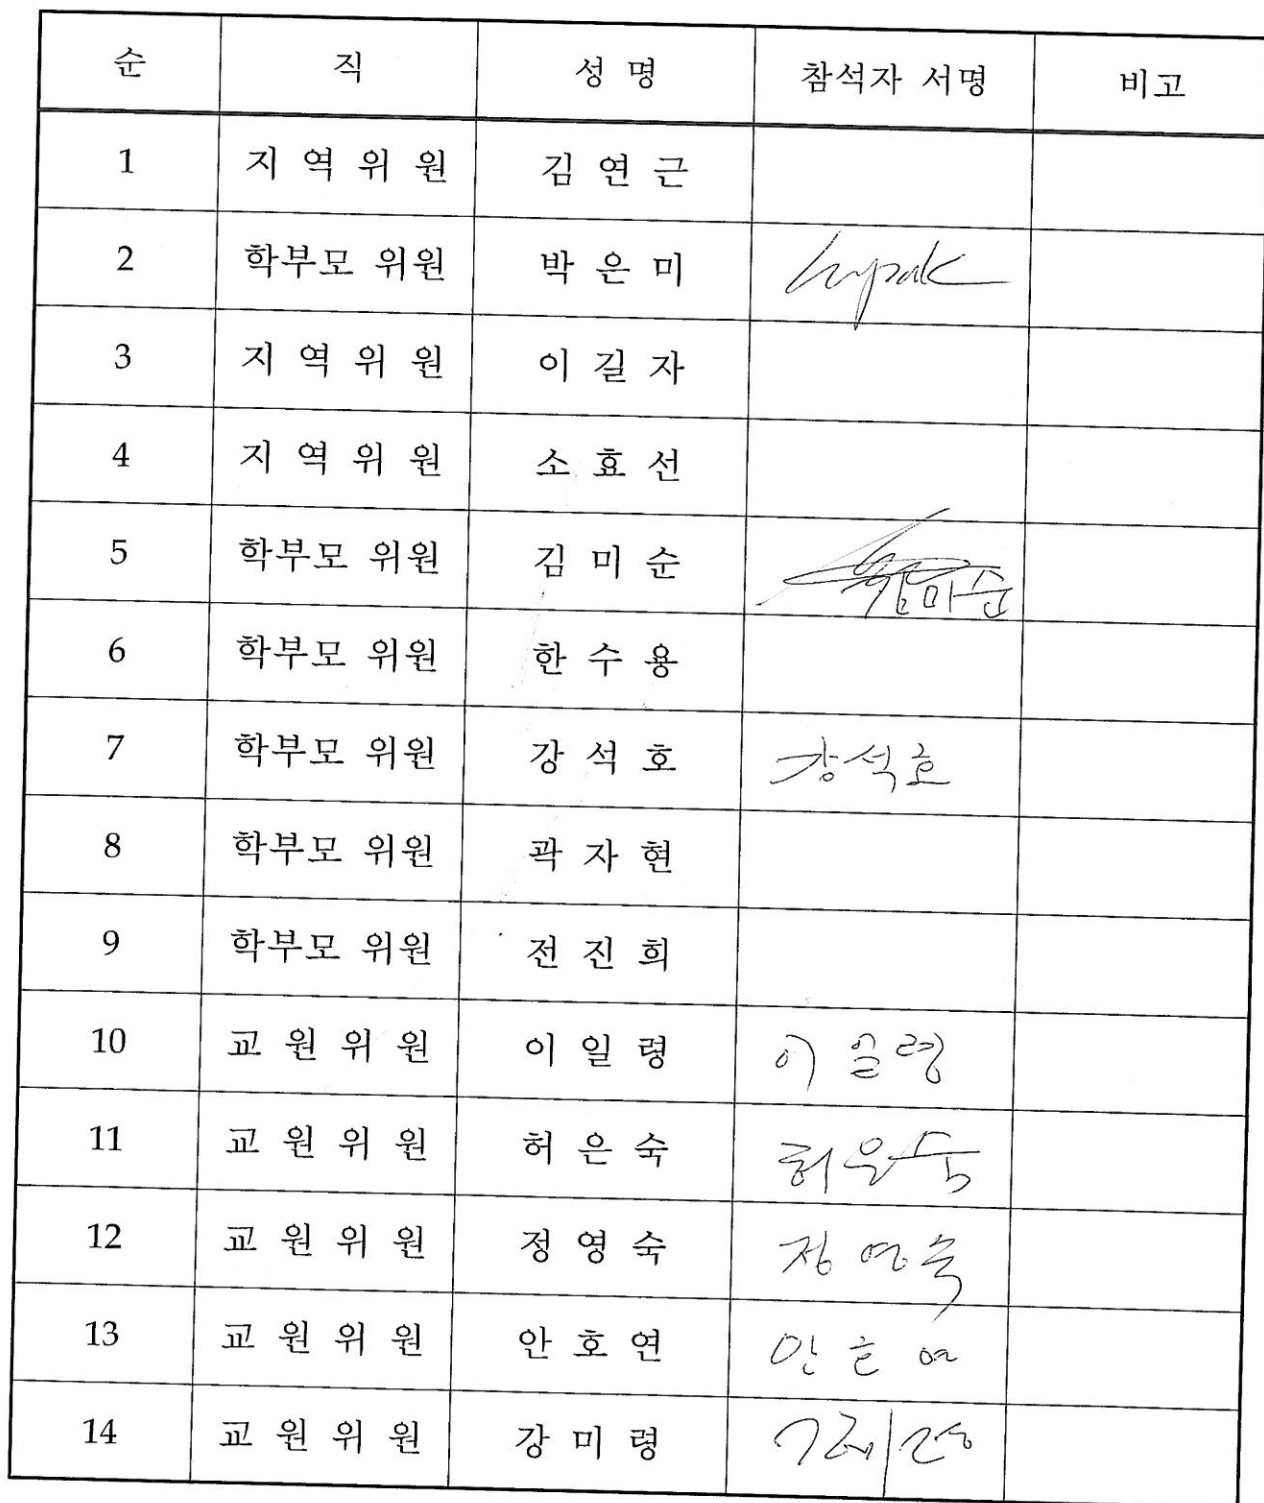 순 직 성 명 참석자 서명 비고
1 지 역 위 원 김 연 근
2 학부모 위원 박 은 미
3 지 역 위 원 이 길 자
4 지 역 위 원 소 효 선
5 학부모 위원 김 미 순 김미순
6 학부모 위원 한 수 용
7 학부모 위원 강 석 호 강석호
8 학부모 위원 곽 자 현
9 학부모 위원 전 진 희
10 교 원 위 원 이 일 령 이 일령
11 교 원 위 원 허 은 숙 허은숙
12 교 원 위 원 정 영 숙 정 영숙
13 교 원 위 원 안 호 연 안 호 연
14 교 원 위 원 강 미 령